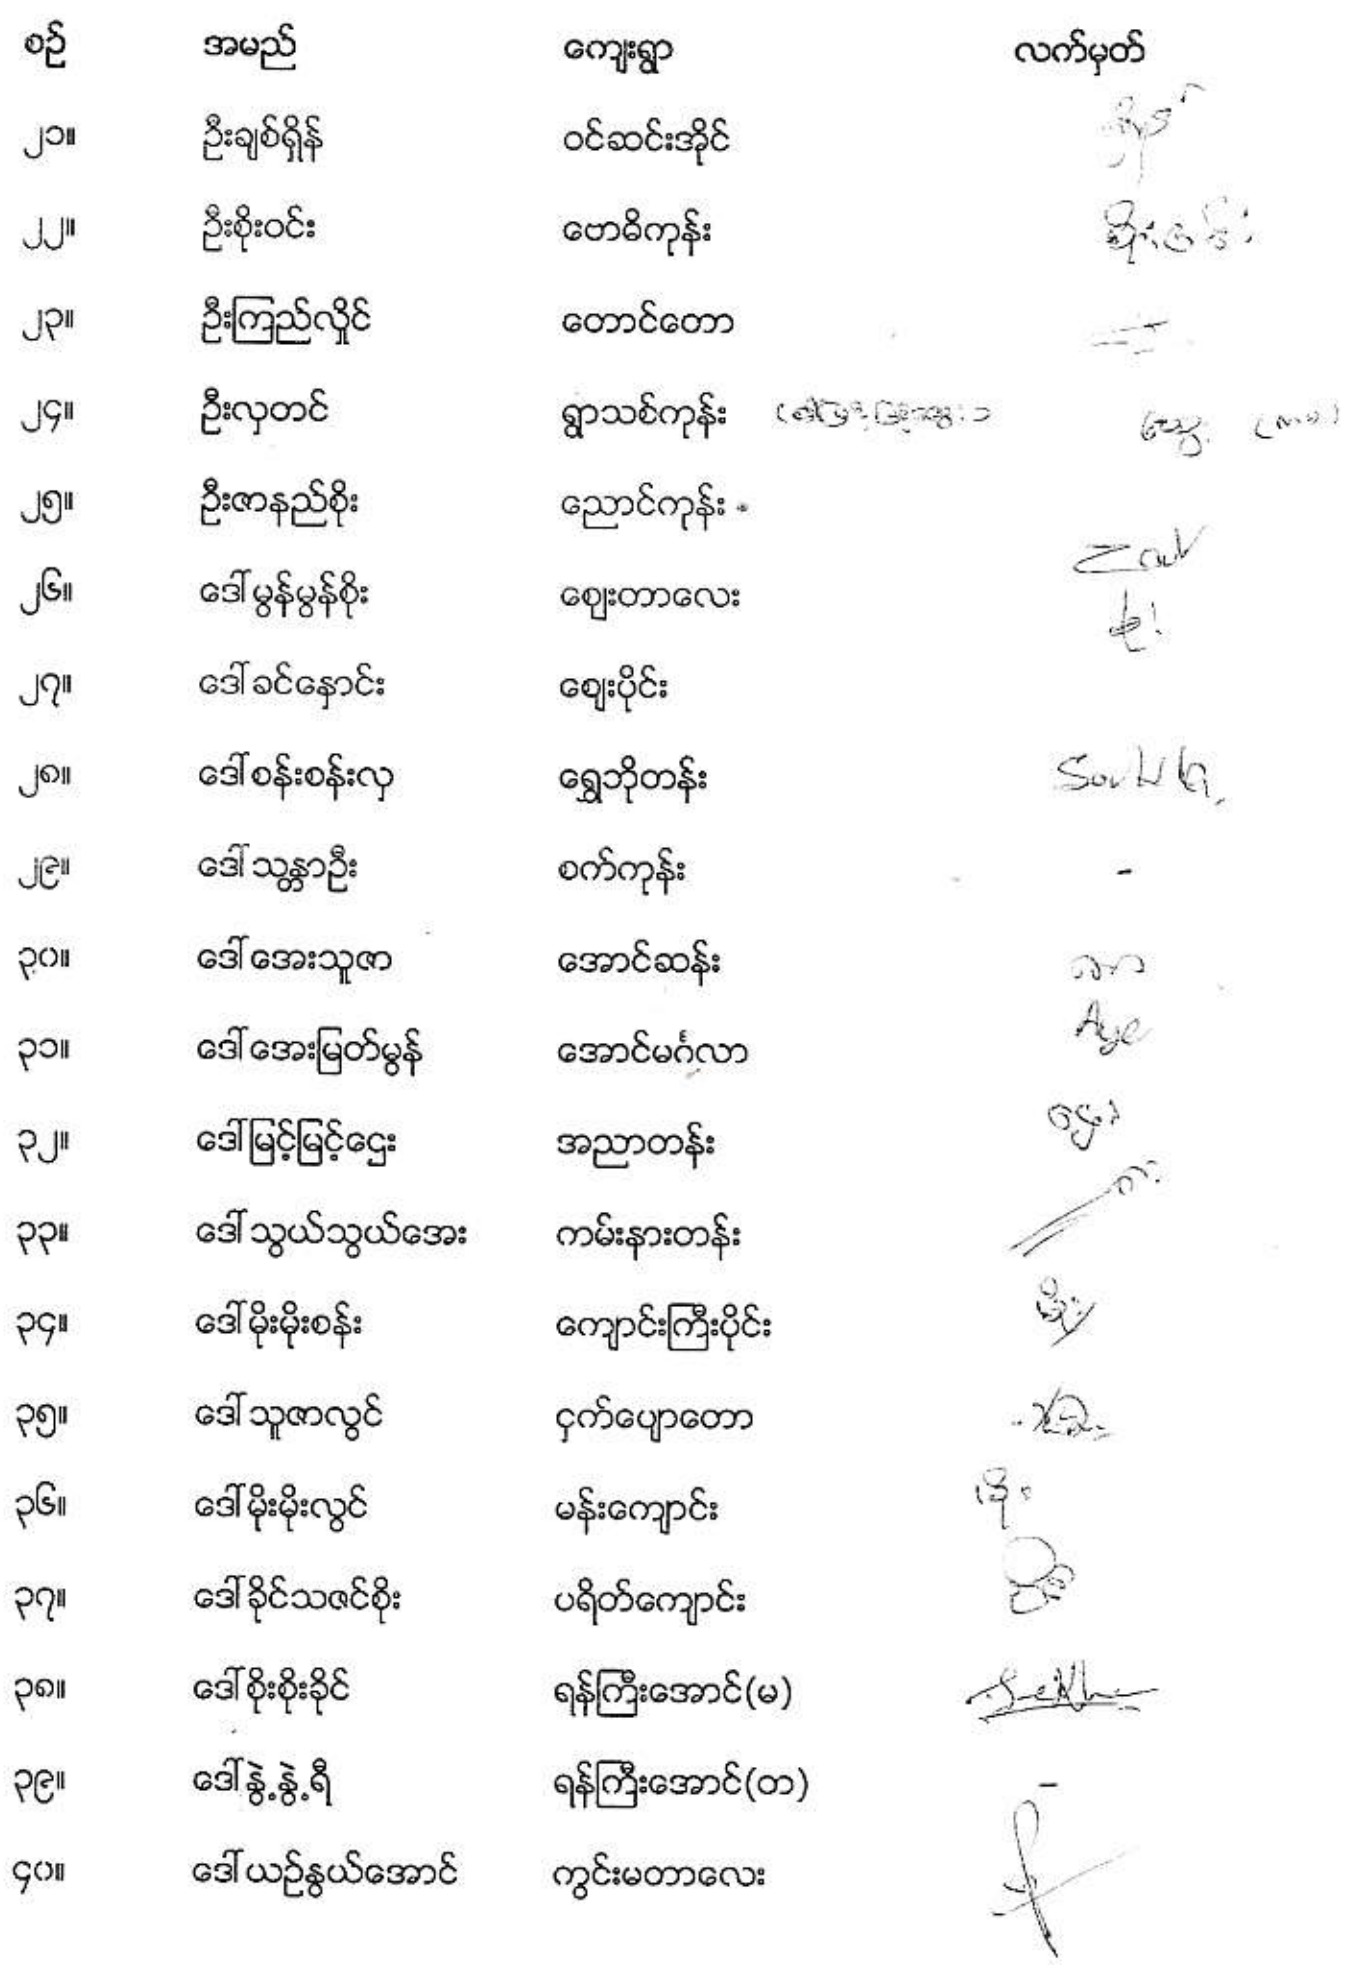 စဉ် အမည် ကျေးရွာ လက်မှတ်
၂၁။ ဦးချစ်ရှိန် ဝင်ဆင်းအိုင်
၂၂။ ဦးစိုးဝင်း ဗောဓိကုန်း စိုးဝင်း
၂၃။ ဦးကြည်လှိုင် တောင်တော
၂၄။ ဦးလှတင် ရွာသစ်ကုန်း
၂၅။ ဦးဇာနည်စိုး ညောင်ကုန်း
၂၆။ ဒေါ်မွန်မွန်စိုး ဈေးတာလေး
၂၇။ ဒေါ်ခင်နှောင်း ဈေးပိုင်း
၂၈။ ဒေါ်စန်းစန်းလှ ရွှေဘိုတန်း
၂၉။ ဒေါ်သန္တာဦး စက်ကုန်း -
၃၀။ ဒေါ်အေးသူဇာ အောင်ဆန်း
၃၁။ ဒေါ်အေးမြတ်မွန် အောင်မင်္ဂလာ Aye
၃၂။ ဒေါ်မြင့်မြင့်ဌေး အညာတန်း
၃၃။ ဒေါ်သွယ်သွယ်အေး ကမ်းနားတန်း
၃၄။ ဒေါ်မိုးမိုးစန်း ကျောင်းကြီးပိုင်း
၃၅။ ဒေါ်သူဇာလွင် ငှက်ပျောတော
၃၆။ ဒေါ်မိုးမိုးလွင် မန်းကျောင်း
၃၇။ ဒေါ်ခိုင်သဇင်စိုး ပရိတ်ကျောင်း
၃၈။ ဒေါ်စိုးစိုးခိုင် ရန်ကြီးအောင်(မ)
၃၉။ ဒေါ်နွဲ့နွဲ့ရီ ရန်ကြီးအောင်(တ) -
၄၀။ ဒေါ်ယဉ်နွယ်အောင် ကွင်းမတာလေး